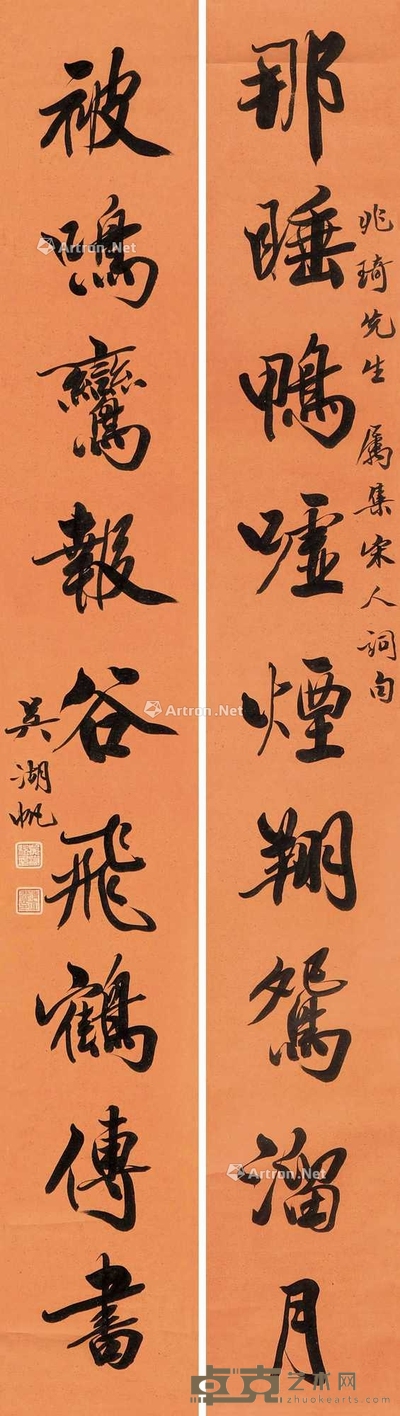 兆琦先生 属集宋人詞句
那睡鴨噓煙翔鴛溜月
被鳴鸞報谷飛鶴傳書
吳湖帆
Artron.Net
Artron.Net
Artron.Net
卓克艺术网
www.zhuokearts.com